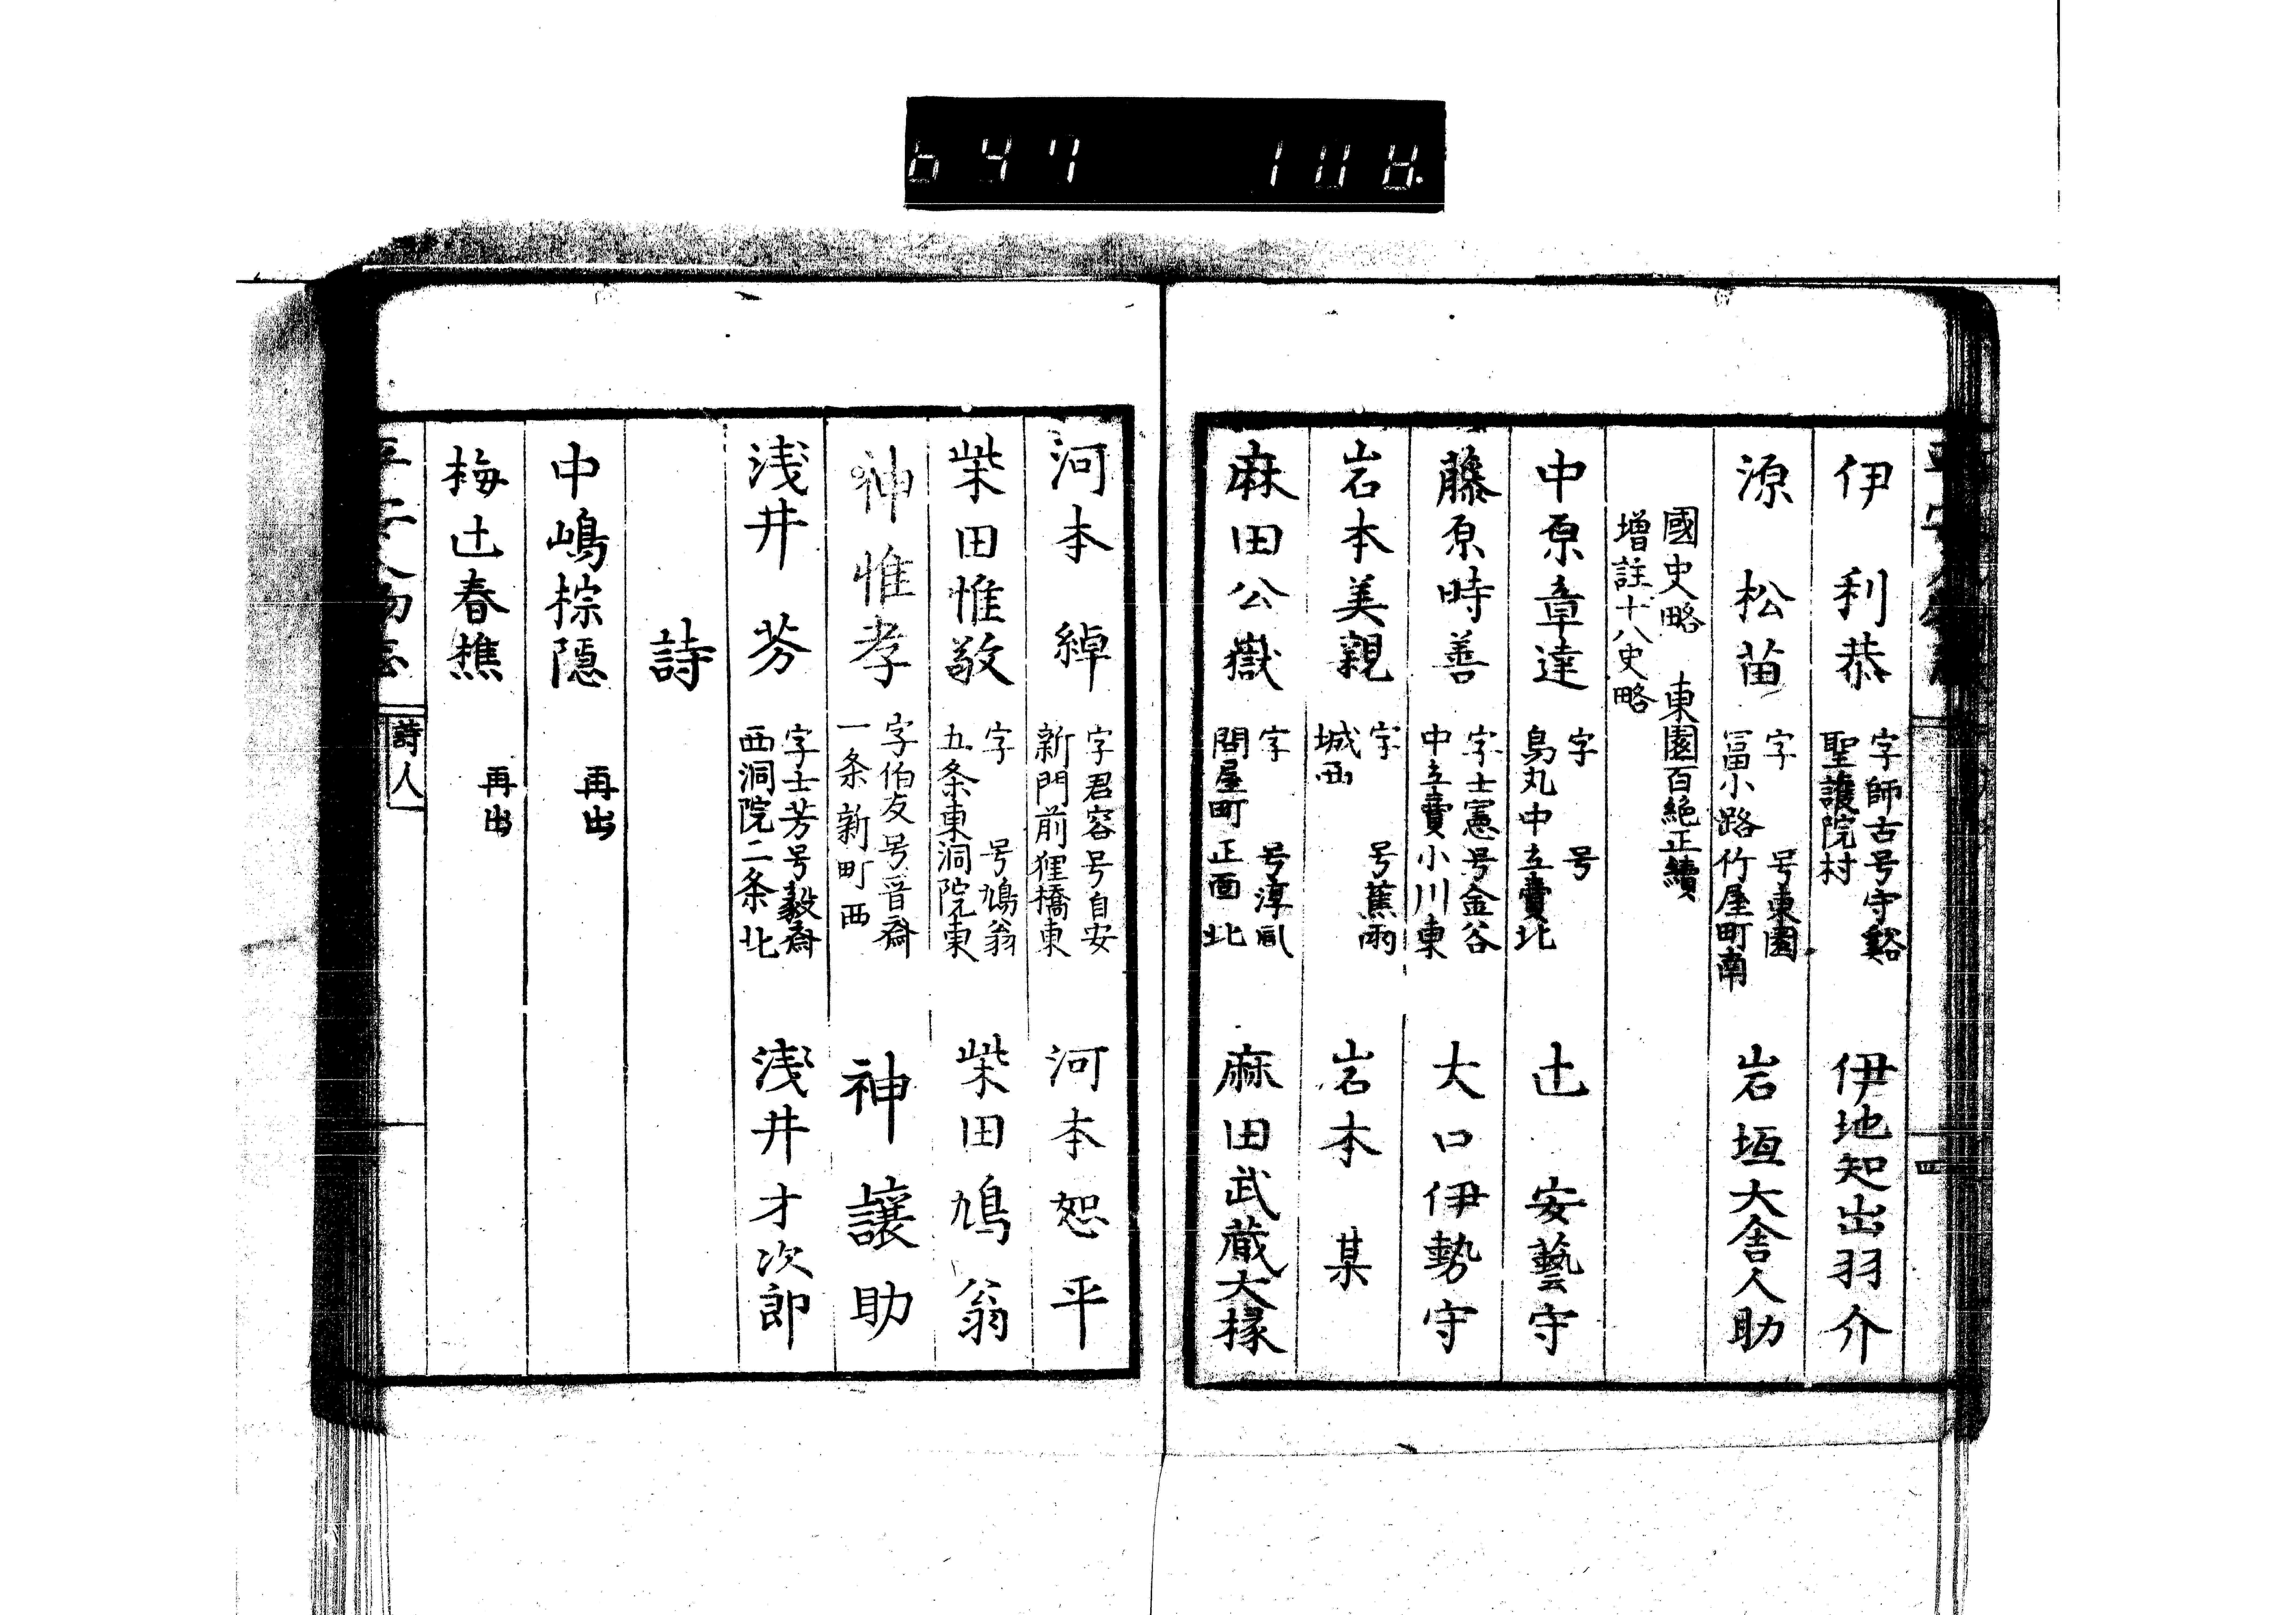 伊利恭
字師古号守谿
聖護院村
伊地知出羽介
源松苗
字 号東園
冨小路竹屋町南
岩垣大舎人助
國史略 東園百絶正續
増註十八史略
中原章達
字 号
烏丸中立賣北
辻安藝守
藤原時善
字士憲号金谷
中立賣小川東
大口伊勢守
岩本美親
字 号蕉雨
城西
岩本某
麻田公嶽
字 号淳風
問屋町正面北
麻田武蔵大掾
四
河本綽
字君容号自安
新門前狸橋東
河本恕平
柴田惟敬
字 号鳩翁
五条東洞院東
柴田鳩翁
神惟孝
字伯友号晋齋
一条新町西
神譲助
浅井芬
字士芳号毅齋
西洞院二条北
浅井才次郎
詩
中嶋棕隠
再出
梅辻春樵
再出
詩人